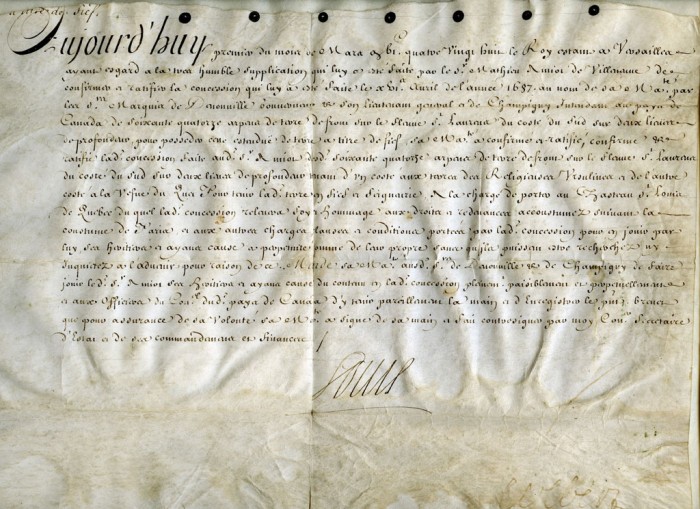 Aujourd'huy premier du mois de Mars xvi.c quatre vingt huit le Roy estant a Versailles
ayant esgard a la tres humble supplication qui luy a esté faite par le s.r Mathieu Amiot de Villeneuve de
confirmer et ratifier la concession qui luy a esté faite le xvi. Avril de l'annee 1687. au nom de sa Ma.té par
les s.rs Marquis de Denonville Gouverneur et son lieutenant general et de Champigny Intendant au pays de
Canada de soixante quatorze arpens de terre de front sur le fleuve s.t Laurens du costé du Sud sur deux lieues
de profondeur, pour posseder cette estendue de terre a titre de fief, sa Ma.té a confirmé et ratifié, confirme et
ratifie lad. concession faite aud. s.r Amiot desd. soixante quatorze arpens de terre de front sur le fleuve s.t Laurens
du costé du Sud sur deux lieues de profondeur d'un costé aux terres des Religieuses Ursulines et de l'autre
costé a la Vefve du Qua Pour tenir lad. terre en fief et Seigneurie A la charge de porter au Chasteau s.t Louis
de Quebec duquel lad. concession relevera foy et hommage aux droits et redevances accoustumez suivant la
coustume de Paris et aux autres charges clauses et conditions portées par lad. concession pour en jouir par
luy ses heritiers et ayans cause a perpetuité comme de leur propre sans qu'ils puissent estre recherchez ny
inquietez a l'advenir pour raison de ce. Mande sa Ma.té ausd. s.rs de Denonville et de Champigny de faire
jouir led. s.r Amiot ses heritiers et ayans cause du contenu en lad. concession plenem.t paisiblement et perpetuellement
et aux Officiers du Con.el dud. pays de Canada d'y tenir pareillement la main et d'enregistrer le pnt brevet
que pour assurance de sa Volonté sa Ma.té a signé de sa main et fait contresigner par moy Con.er Secretaire
d'Estat et de ses commandemens et finances
Louis